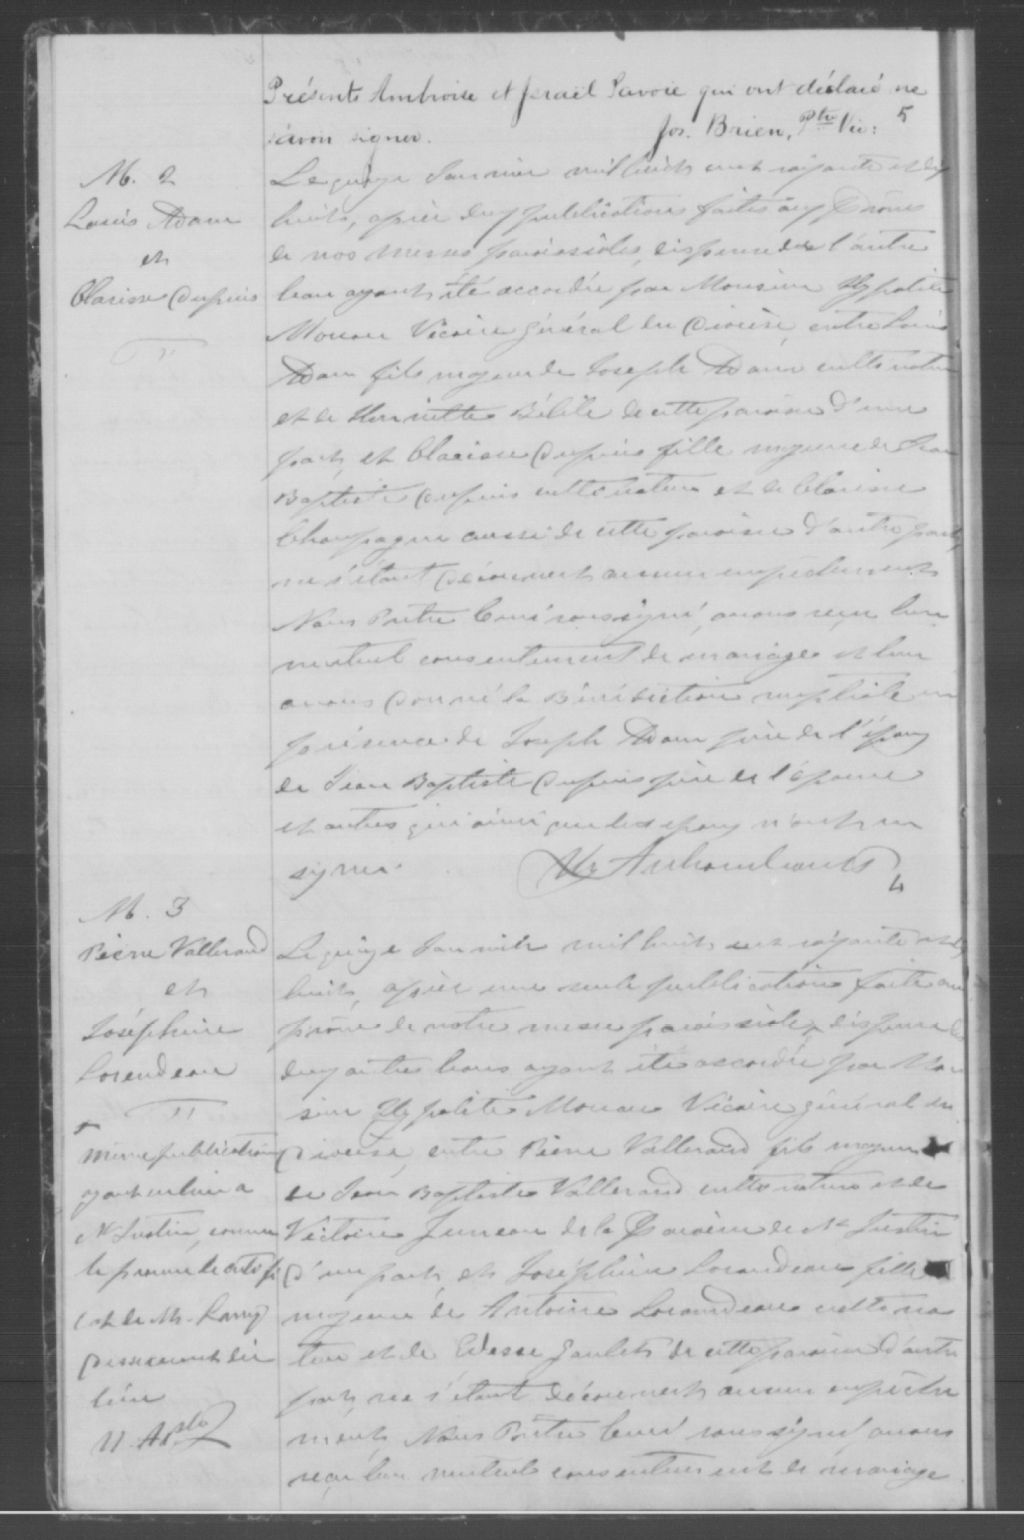 Présents Ambroise et Israël Savoie qui ont déclaré ne
savoir signer. Jos. Brien, Ptre Vic: 5
M. 2
Louis Adam
et
Clarisse Dupuis
Le quinze Janvier mil huit cent soixante et dix
huit, après deux publications faites aux prônes
de nos messes paroissiales, dispense de l'autre
ban ayant été accordée par Monsieur Hypolite
Moreau Vicaire général du Diocèse, entre Louis
Adam fils majeur de Joseph Adam cultivateur
et de Henriette Bélile de cette paroisse d'une
part, et Clarisse Dupuis fille majeure de Jean
Baptiste Dupuis cultivateur et de Clarisse
Champagne aussi de cette paroisse d'autre part,
ne s'étant découvert aucun empêchement
Nous Prêtre Curé soussigné, avons reçu leur
mutuel consentement de mariage et leur
avons donné la Bénédiction nuptiale en
présence de Joseph Adam père de l'époux
de Jean Baptiste Dupuis père de l'épouse
et autres qui ainsi que les époux n'ont su
signer. Archambault
4
M. 3
Pierre Vallerand
et
Joséphine
Lorendeau
même publication
ayant eu lieu à
St Justin, comme
le prouve le certifi
cat de Mr.
lieu
Le quinze Janvier mil huit cent soixante et dix
huit, après une seule publication faite au
prône de notre messe paroissiale, dispense de
deux autres bans ayant été accordée par Mon
sieur Hypolite Moreau Vicaire général du
Diocèse, entre Pierre Vallerand fils majeur
de Jean Baptiste Vallerand cultivateur et de
Victoire Juneau de la Paroisse de St Justin
d'une part, et Joséphine Lorendeau fille
majeure de Antoine Lorendeau cultiva
teur et de Edesse Goulet de cette paroisse d'autre
part, ne s'étant découvert aucun empêche
ment, Nous Prêtre Curé soussigné avons
reçu leur mutuel consentement de mariage